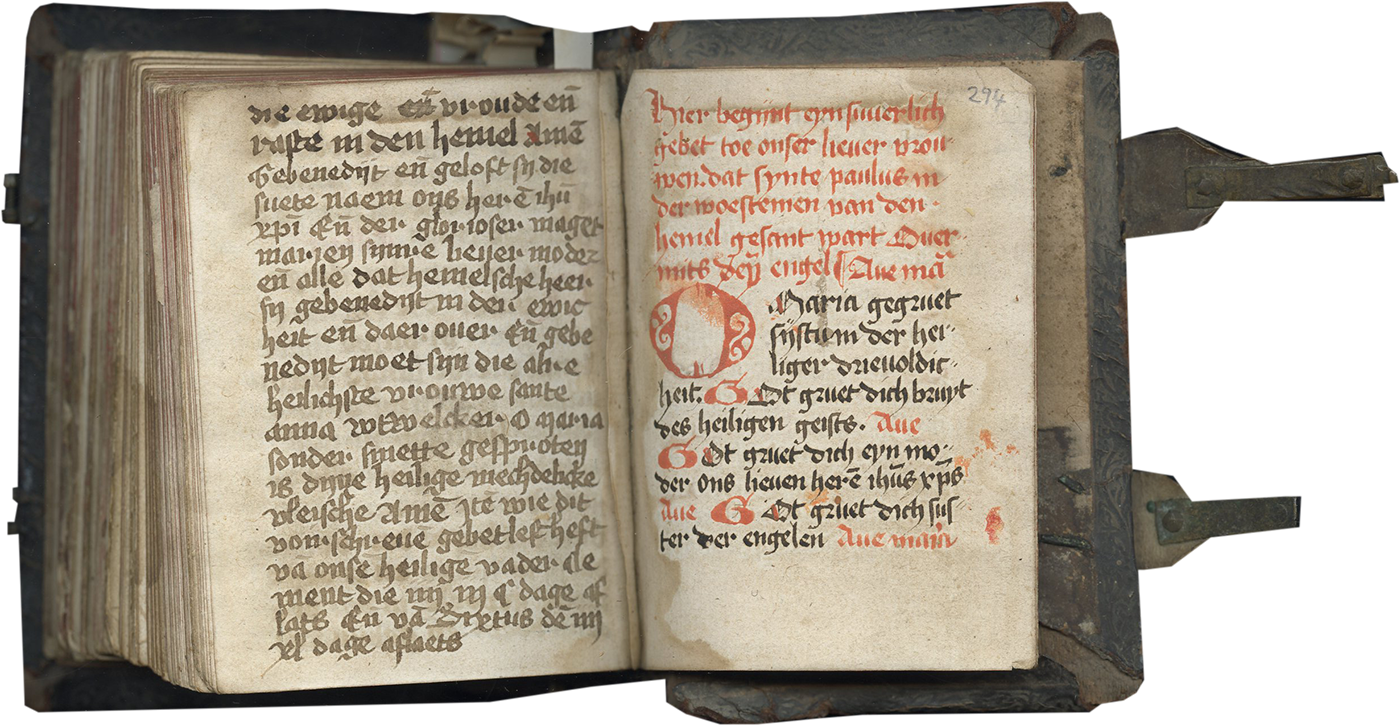 die ewige eñ vroude eñ
raste in den hemel Amē
Gebenedijt eñ geloft sij die
suete naem ons herē ihū
xp̄i Eñ der glorioser maget
marien sijnre liever moder
eñ alle dat hemelsche heer
sij gebenedijt in der ewic
heit eñ daer over Eñ gebe
nedijt moet sijn die alre
heilichste vrouwe sante
anna wt welcker O maria
sonder smette gesproten
is dijne heilige mechdelicke
vleische Amē Itē wie dit
vorschrevē gebet lest heft
vā onse heilige vader cle
ment die iiij m c dage af
lats Eñ vā Sixtus dē iiij
xl dage aflaets
294
Hier begijnt eyn suverlich
gebet toe onser liever vrou
wen dat synte paulus in
der woestenien van den
hemel gesant wart Over
mits deñ engel Ave mā
O Maria gegruet
sijstu in der hei
liger drievoldic
heit. Got gruet dich bruyt
des heiligen geists. Ave
Got gruet dich eyn mo
der ons lieven herē ihūs xp̄s
Ave Got gruet dich sus
ter der engelen Ave maria